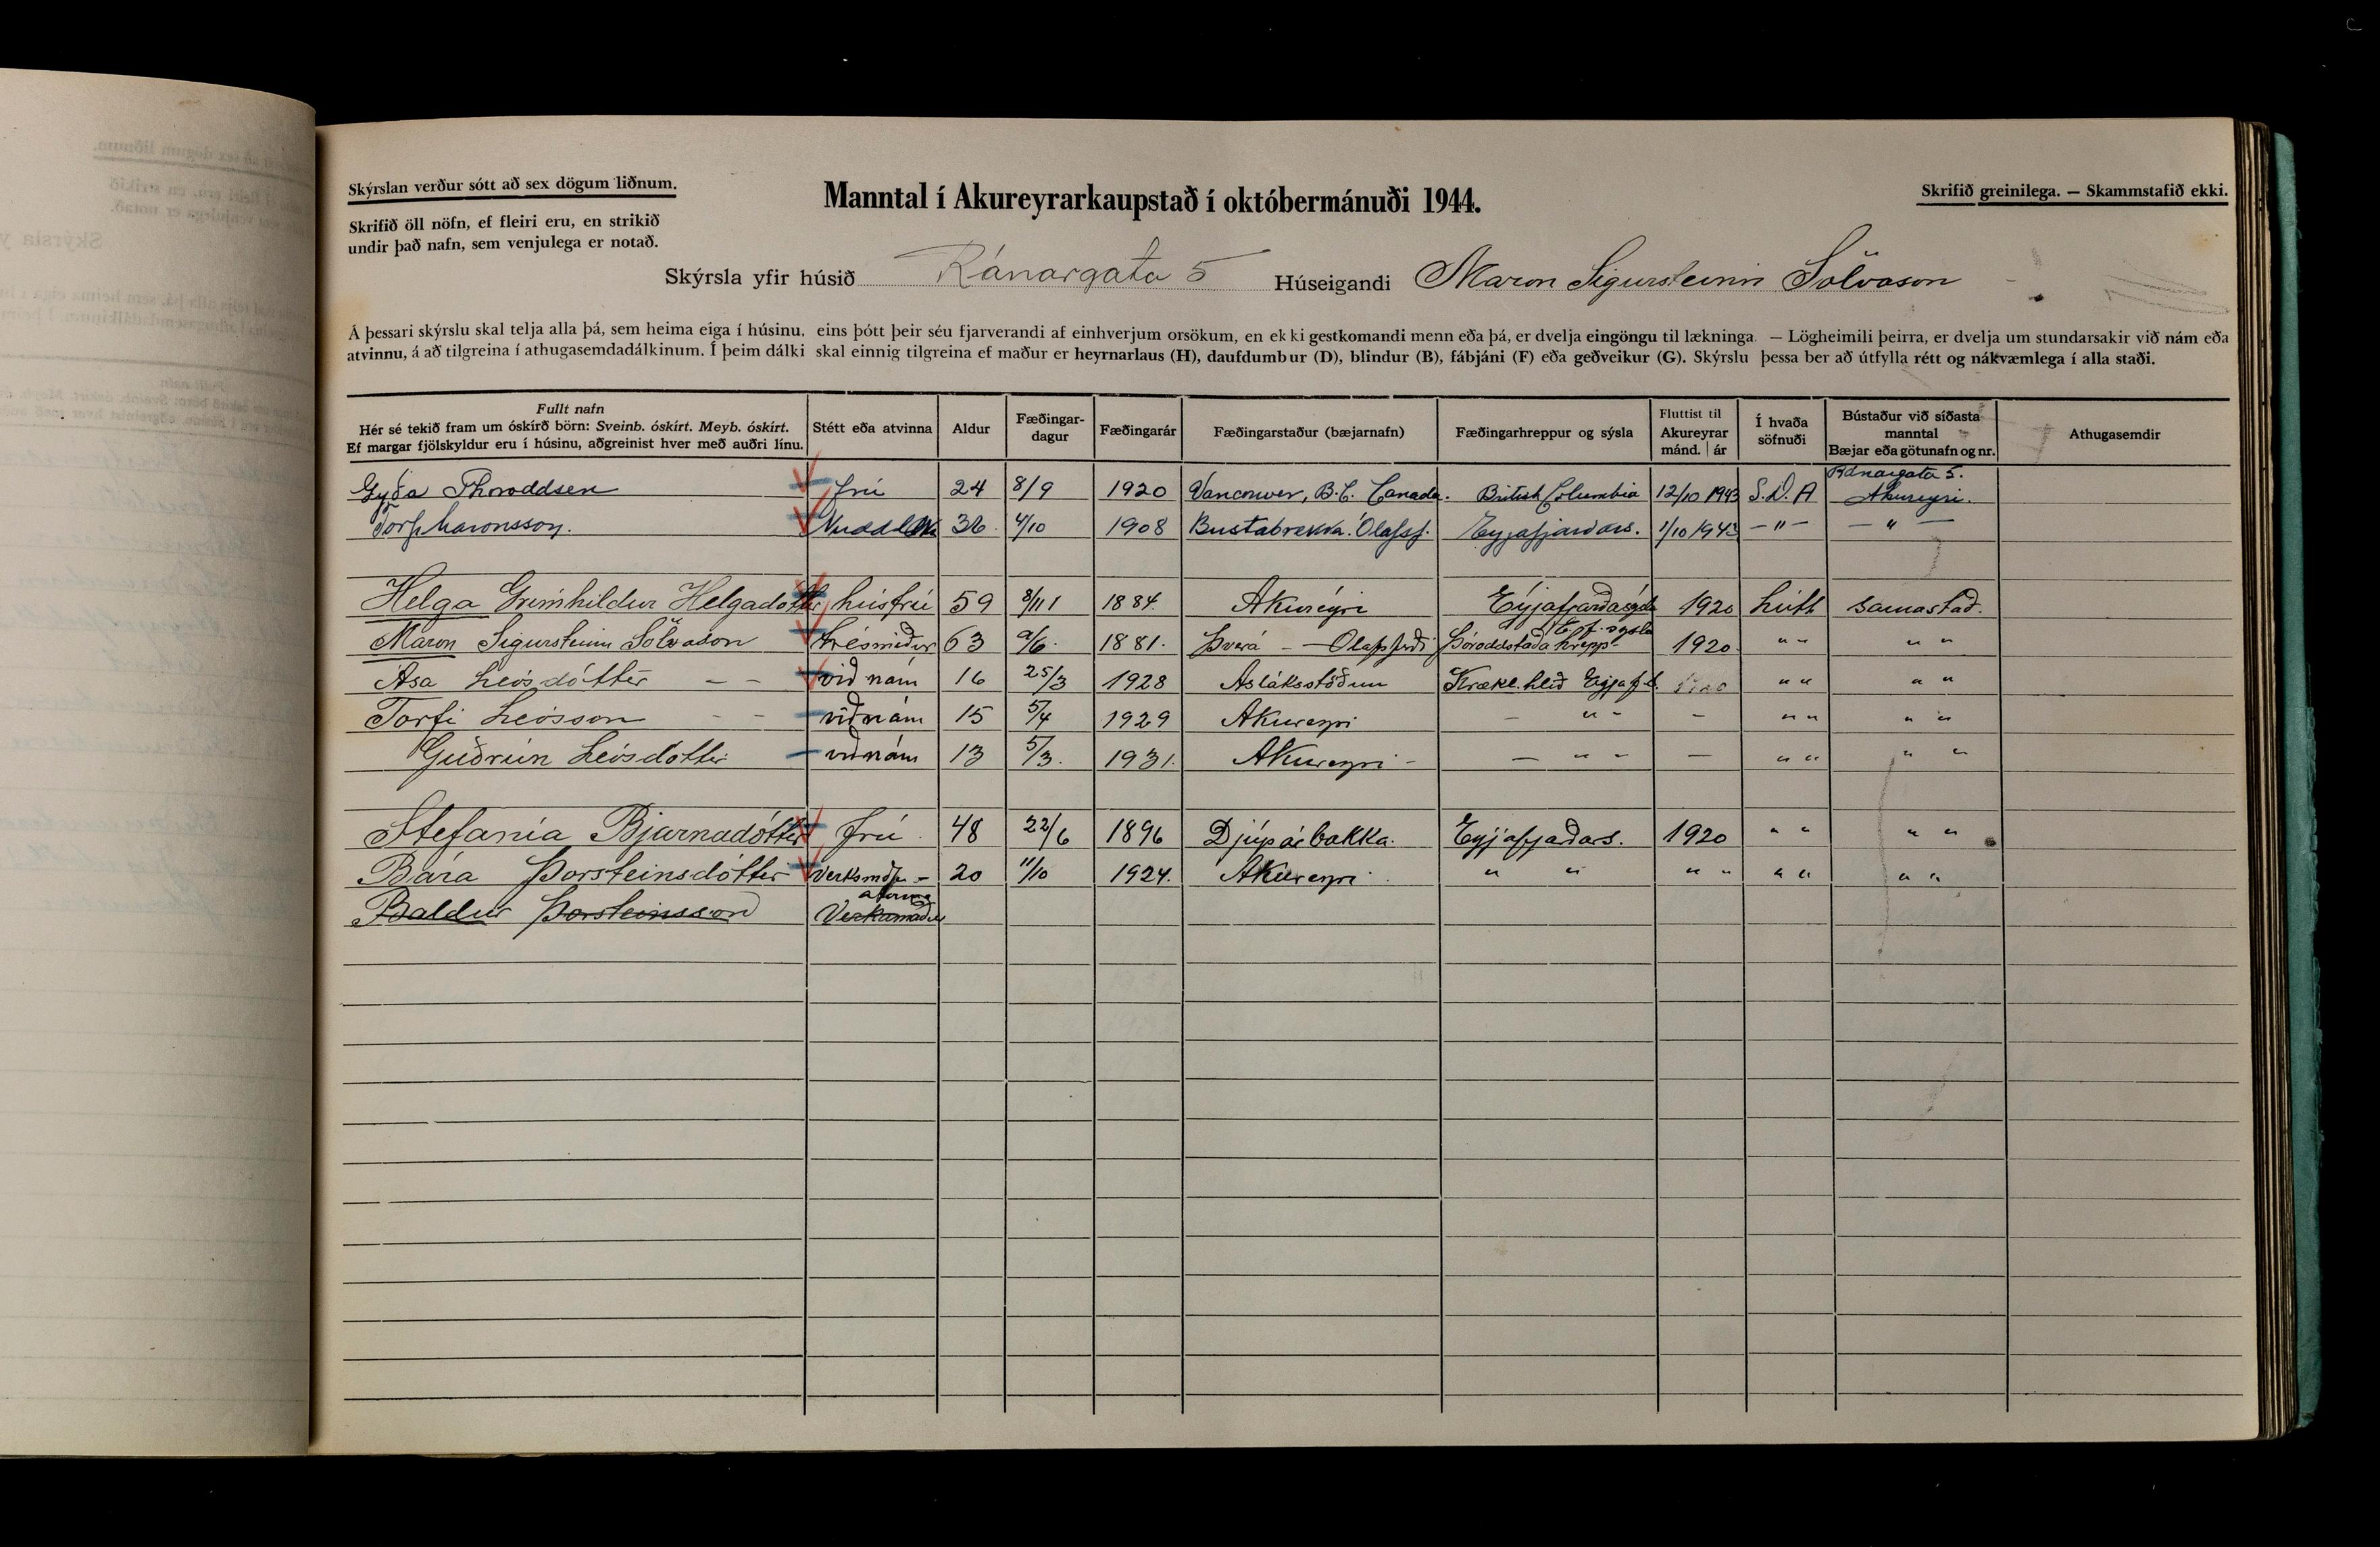 Skýrslan verður sótt að sex dögum liðnum.
Skrifið öll nöfn, ef fleiri eru, en strikið
undir það nafn, sem venjulega er notað.
Manntal í Akureyrarkaupstað í októbermánuði 1944.
Skrifið greinilega. — Skammstafið ekki.
Skýrsla yfir húsið Ránargata 5 Húseigandi Maron Sigursteinn Sölvason
Á þessari skýrslu skal telja alla þá, sem heima eiga í húsinu, eins þótt þeir séu fjarverandi af einhverjum orsökum, en ekki gestkomandi menn eða þá, er dvelja eingöngu til lækninga. — Lögheimili þeirra, er dvelja um stundarsakir við nám eða
atvinnu, á að tilgreina í athugasemdadálkinum. Í þeim dálki skal einnig tilgreina ef maður er heyrnarlaus (H), daufdumbur (D), blindur (B), fábjáni (F) eða geðveikur (G). Skýrslu þessa ber að útfylla rétt og nákvæmlega í alla staði.
Fullt nafn
Hér sé tekið fram um óskírð börn: Sveinb. óskírt. Meyb. óskírt.
Ef margar fjölskyldur eru í húsinu, aðgreinist hver með auðri línu.
Stétt eða atvinna
Aldur
Fæðingar-
dagur
Fæðingarár
Fæðingarstaður (bæjarnafn)
Fæðingarhreppur og sýsla
Fluttist til
Akureyrar
mánd. | ár
Í hvaða
söfnuði
Bústaður við síðasta
manntal
Bæjar eða götunafn og nr.
Athugasemdir
Gyða Thoroddsen frú 24 8/9 1920 Vancouver, B.C. Canada. British Columbia 12/10 1943 S.D.A Ránargata 5. Akureyri.
Torfi Maronsson. 36 4/10 1908 Bustabrekka. Ólafsf. Eyjafjarðars. 1/10 1943 — " — — " —
Helga Grímhildur Helgadóttir húsfrú 59 8/11 1884. Akureyri Eyjafjarðasýsla 1920 Lúth samastað.
Maron Sigursteinn Sölvason trésmiður 63 9/6. 1881. Þverá — Olafsfirði Þóroddstaðahrepp Eyf. sysla 1920 " " " "
Ása Leósdóttir — — við nám 16 25/3 1928 Asláksstöðum Krækl.hlíð 1920 " " " "
Torfi Leósson - - við nám 15 5/4 1929 Akureyri — " - — " " " "
Guðrún Leósdóttir við nám 13 5/3. 1931. Akureyri - — " - — " " " "
Stefanía Bjarnadóttir frú 48 22/6 1896 Djúpárbakka. Eyjafjaðars. 1920 " " " "
Bára Þorsteinsdóttir 20 11/10 1924. Akureyri " " " " " " " "
Baldur Þorsteinsson Verkamaður